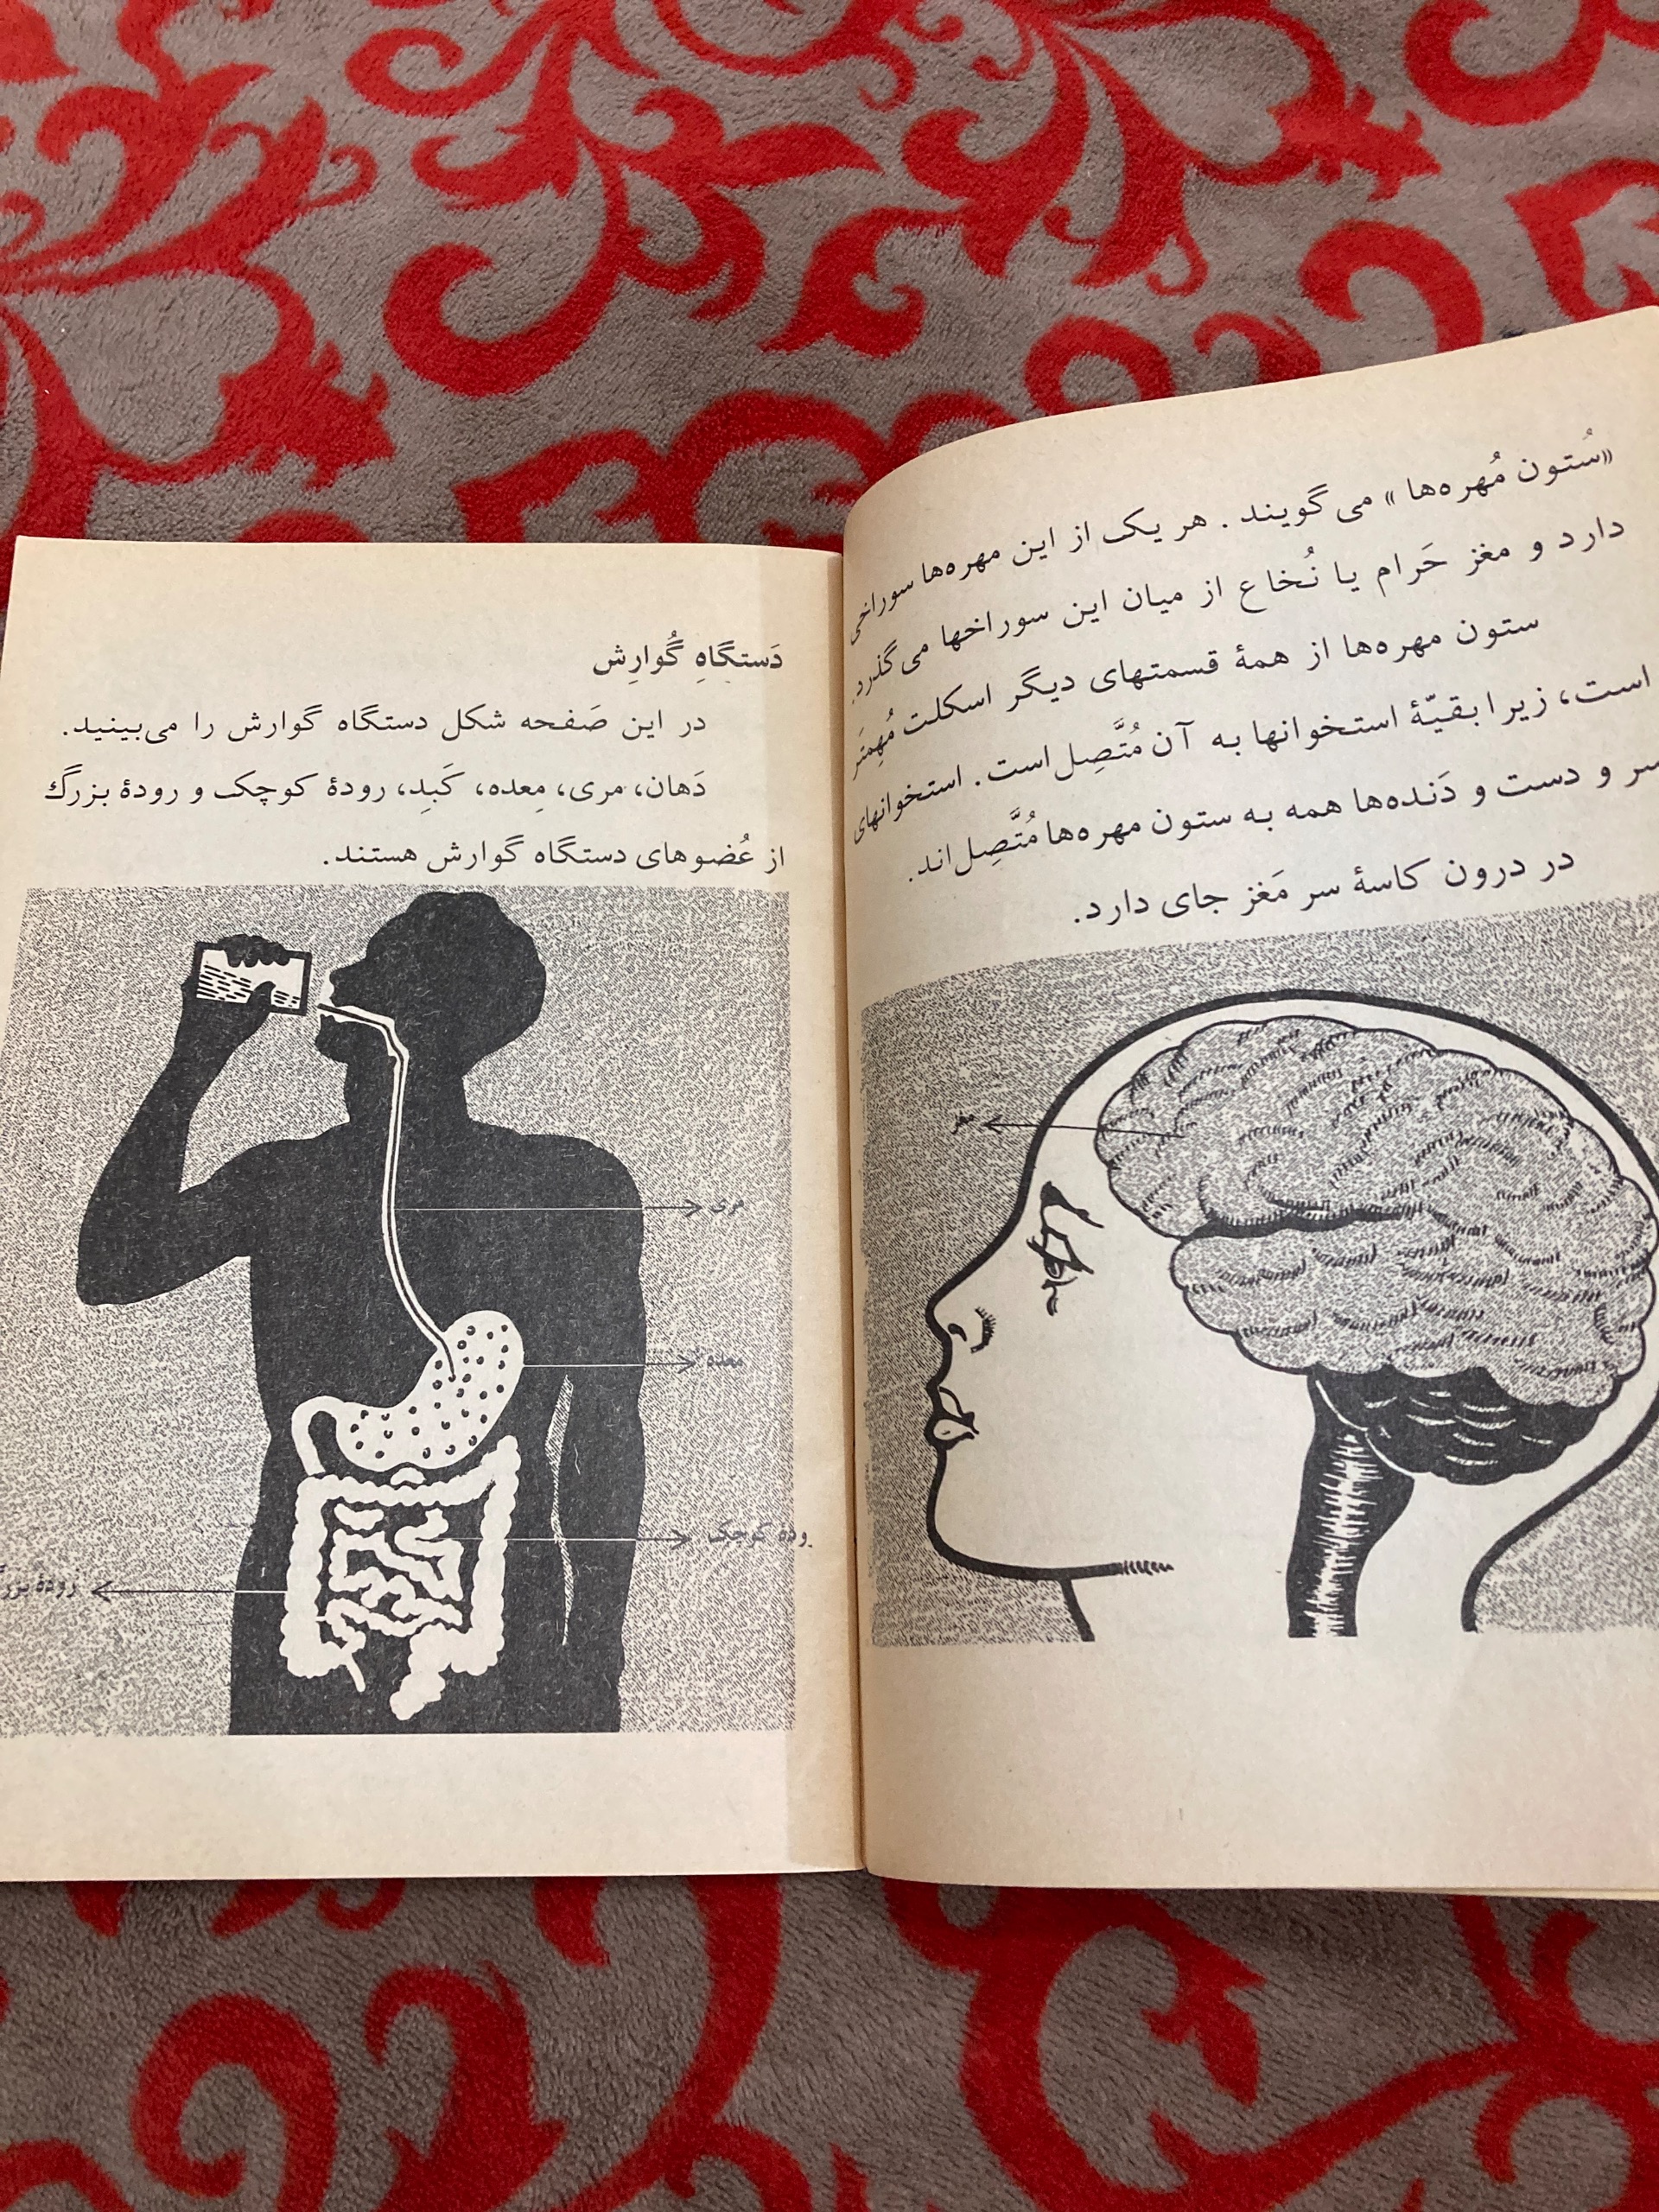 «سُتون مُهره‌ها» می‌گویند. هر یک از این مهره‌ها سوراخی
دارد و مغز حَرام یا نُخاع از میان این سوراخها می‌گذرد.
ستون مهره‌ها از همهٔ قسمتهای دیگر اسکلت مُهِمتَر
است، زیرا بقیّهٔ استخوانها به آن مُتَّصِل است. استخوانهای
سر و دست و دَنده‌ها همه به ستون مهره‌ها مُتَّصِل‌اند.
در درون کاسهٔ سر مَغز جای دارد.
مغز
دَستگاهِ گُوارِش
در این صَفحه شکل دستگاه گوارش را می‌بینید.
دَهان، مری، مِعده، کَبِد، رودهٔ کوچک و رودهٔ بزرگ
از عُضوهای دستگاه گوارش هستند.
مری
معده
رودهٔ کوچک
رودهٔ